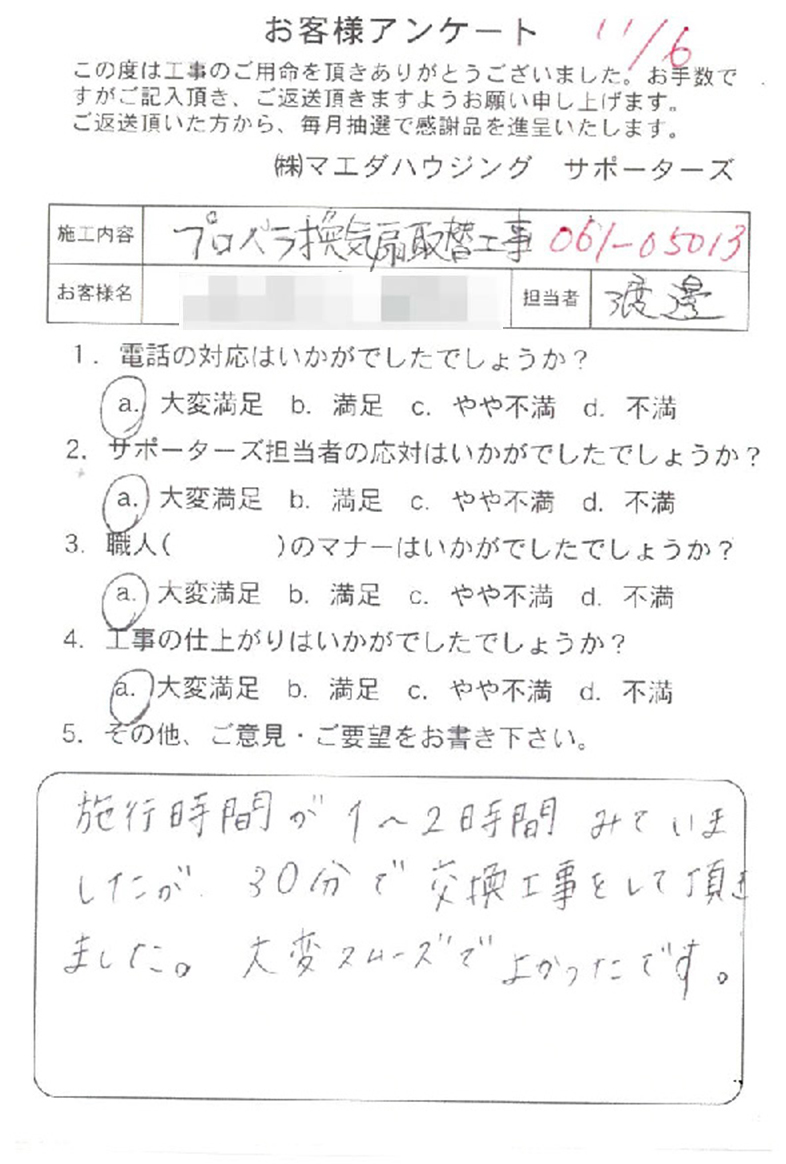 お客様アンケート 11/6
この度は工事のご用命を頂きありがとうございました。お手数で
すがご記入頂き、ご返送頂きますようお願い申し上げます。
ご返送頂いた方から、毎月抽選で感謝品を進呈いたします。
㈱マエダハウジング サポーターズ
施工内容 プロペラ換気扇取替工事 061-05013
お客様名 担当者 渡邊
1. 電話の対応はいかがでしたでしょうか?
a. 大変満足 b. 満足 c. やや不満 d. 不満
2. サポーターズ担当者の応対はいかがでしたでしょうか?
a. 大変満足 b. 満足 c. やや不満 d. 不満
3. 職人( )のマナーはいかがでしたでしょうか?
a. 大変満足 b. 満足 c. やや不満 d. 不満
4. 工事の仕上がりはいかがでしたでしょうか?
a. 大変満足 b. 満足 c. やや不満 d. 不満
5. その他、ご意見・ご要望をお書き下さい。
施行時間が1~2時間みていま
したが、30分で交換工事をして頂き
ました。大変スムーズでよかったです。